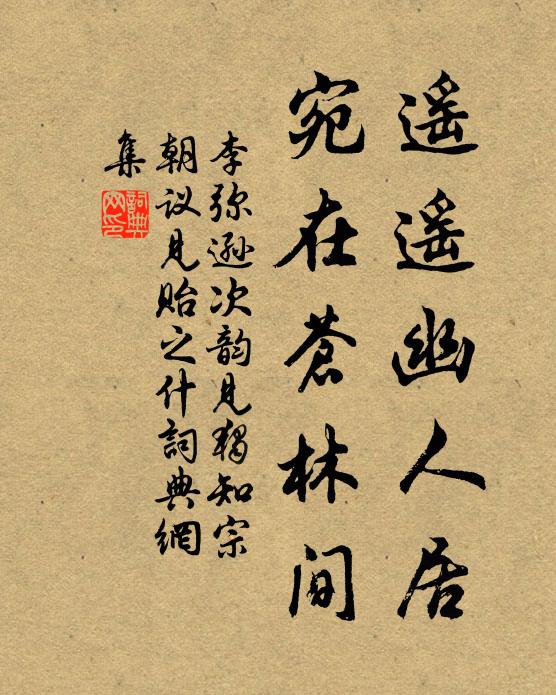 遥遥幽人居
宛在苍林间
李弥逊次韵见独知宗
朝议见贻之什詞典網
集
詞典
网印